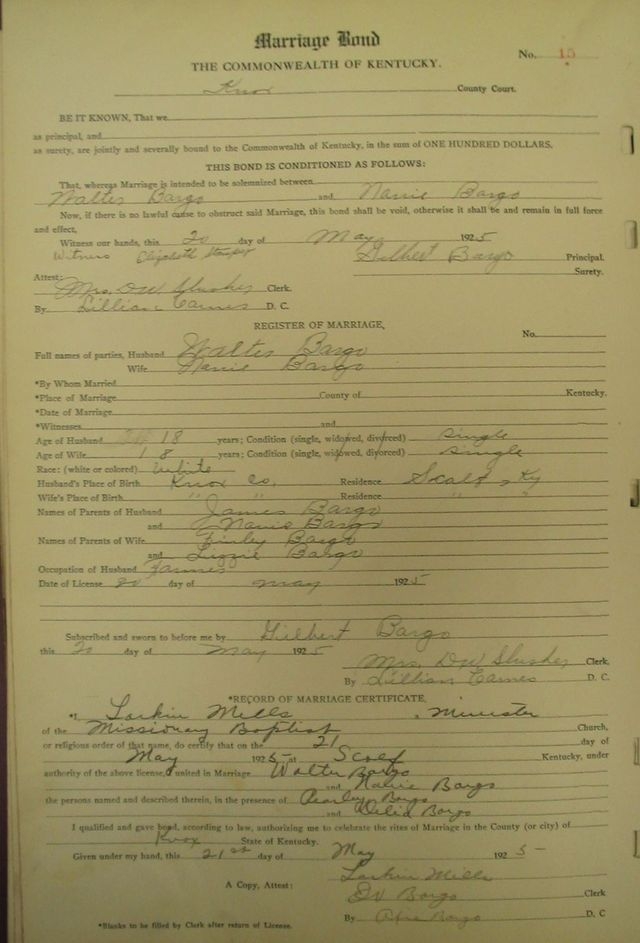 Marriage Bond
No. 15
THE COMMONWEALTH OF KENTUCKY.
Knox County Court.
BE IT KNOWN, That we
as principal, and
as surety, are jointly and severally bound to the Commonwealth of Kentucky, in the sum of ONE HUNDRED DOLLARS.
THIS BOND IS CONDITIONED AS FOLLOWS:
That, whereas Marriage is intended to be solemnized between
Walter Bargo and Nanie Bargo
Now, if there is no lawful cause to obstruct said Marriage, this bond shall be void, otherwise it shall be and remain in full force
and effect,
Witness our hands, this 20 day of May 1925
Witness Elizabeth Gilbert Bargo Principal.
Surety.
Attest:
Mrs. DW Slusher Clerk.
By Lillian Carnes D. C.
REGISTER OF MARRIAGE,
No.
Full names of parties, Husband Walter Bargo
Wife Nanie Bargo
*By Whom Married
*Place of Marriage County of Kentucky.
*Date of Marriage
*Witnesses and
Age of Husband 18 years; Condition (single, widowed, divorced) single
Age of Wife 18 years; Condition (single, widowed, divorced) single
Race: (white or colored) white
Husband's Place of Birth Knox Co. Residence Scalf, Ky
Wife's Place of Birth " " Residence " "
Names of Parents of Husband James Bargo
and Nanie Bargo
Names of Parents of Wife Finley Bargo
and Lizzie Bargo
Occupation of Husband Farmer
Date of License 20 day of May 1925
Subscribed and sworn to before me by Gilbert Bargo
this 20 day of May 1925
Mrs. DW Slusher Clerk,
By Lillian Carnes D. C.
*RECORD OF MARRIAGE CERTIFICATE,
*I, Larkin Mills, Minister
of the Missionary Baptist Church,
or religious order of that name, do certify that on the 21 day of
May 1925- at Scalf Kentucky, under
authority of the above license, united in Marriage Walter Bargo
and Nanie Bargo
the persons named and described therein, in the presence of Bargo
and Delia Bargo
I qualified and gave bond, according to law, authorizing me to celebrate the rites of Marriage in the County (or city) of
Knox State of Kentucky.
Given under my hand, this 21st day of May 1925-
Larkin Mills
A Copy, Attest: Bargo Clerk
By Bargo D. C
*Blanks to be filled by Clerk after return of License.